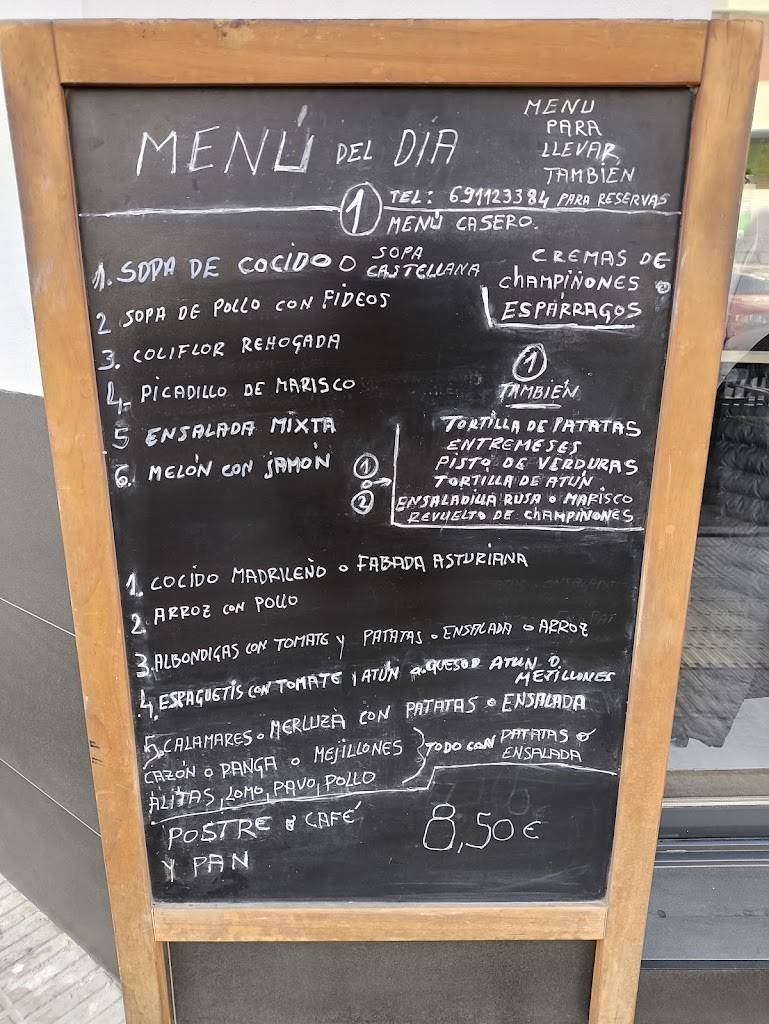 MENÚ DEL DÍA
MENU
PARA
LLEVAR
TAMBIÉN
TEL: 691123384 PARA RESERVAS
1 MENÚ CASERO.
1. SOPA DE COCIDO O SOPA CASTELLANA
2 SOPA DE POLLO CON FIDEOS
3. COLIFLOR REHOGADA
4- PICADILLO DE MARISCO
5 ENSALADA MIXTA
6. MELÓN CON JAMÓN
CREMAS DE
CHAMPIÑONES O
ESPÁRRAGOS
1
TAMBIÉN
TORTILLA DE PATATAS
ENTREMESES
PISTO DE VERDURAS
TORTILLA DE ATÚN
ENSALADILLA RUSA O MARISCO
REVUELTO DE CHAMPIÑONES
1
O
2
1. COCIDO MADRILEÑO O FABADA ASTURIANA
2. ARROZ CON POLLO
3. ALBONDIGAS CON TOMATE Y PATATAS O ENSALADA O ARROZ
4. ESPAGUETIS CON TOMATE Y ATÚN QUESO ATUN O
MEJILLONES
5. CALAMARES O MERLUZA CON PATATAS O ENSALADA
CAZÓN O PANGA O MEJILLONES
ALITAS, LOMO, PAVO, POLLO
TODO CON PATATAS O
ENSALADA
POSTRE CAFÉ
Y PAN
8,50€